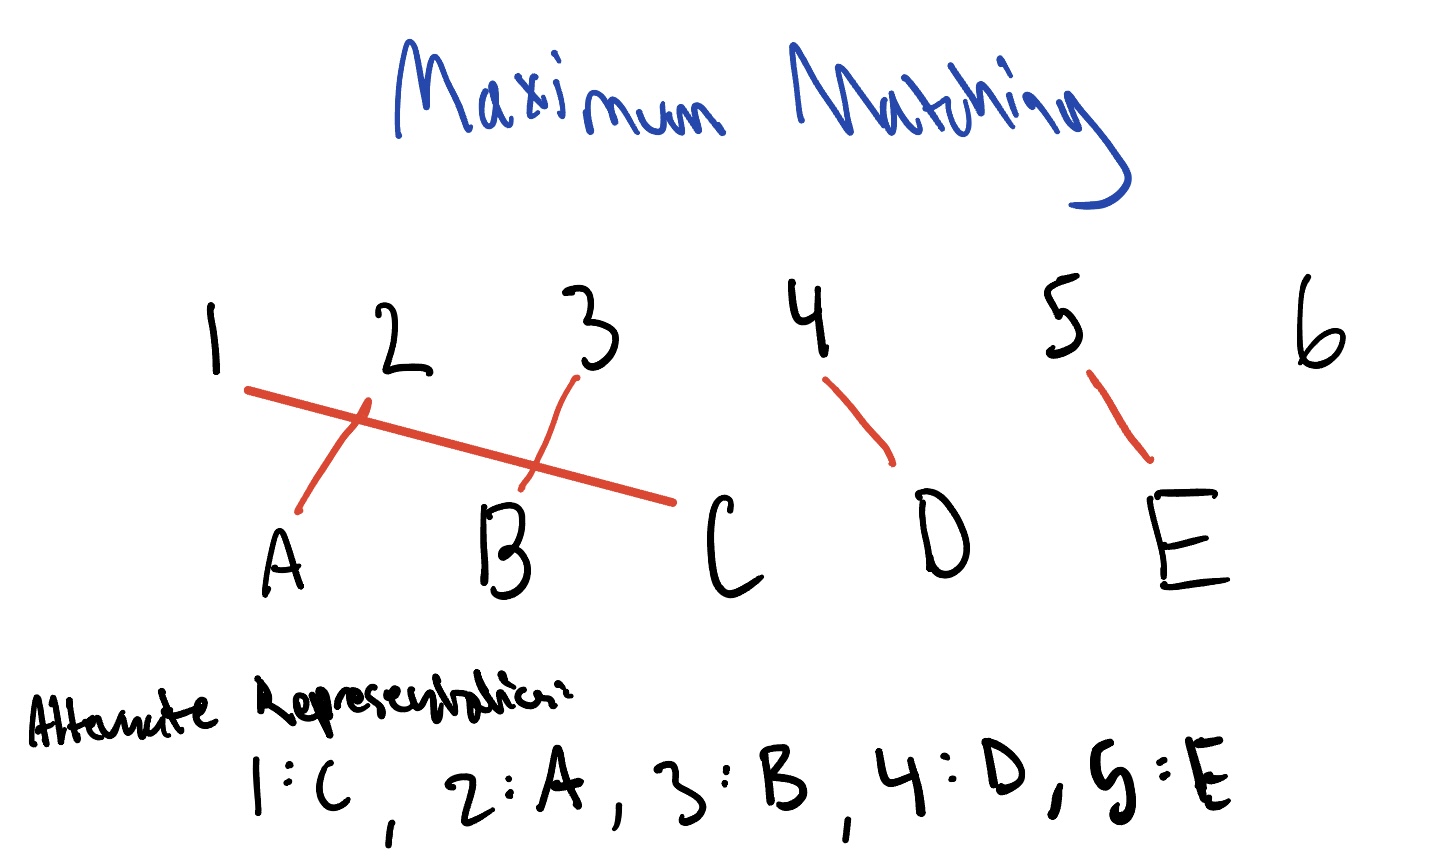 Maximum Matching
1 2 3 4 5 6
A B C D E
Alternate Representation:
1:C, 2:A, 3:B, 4:D, 5:E